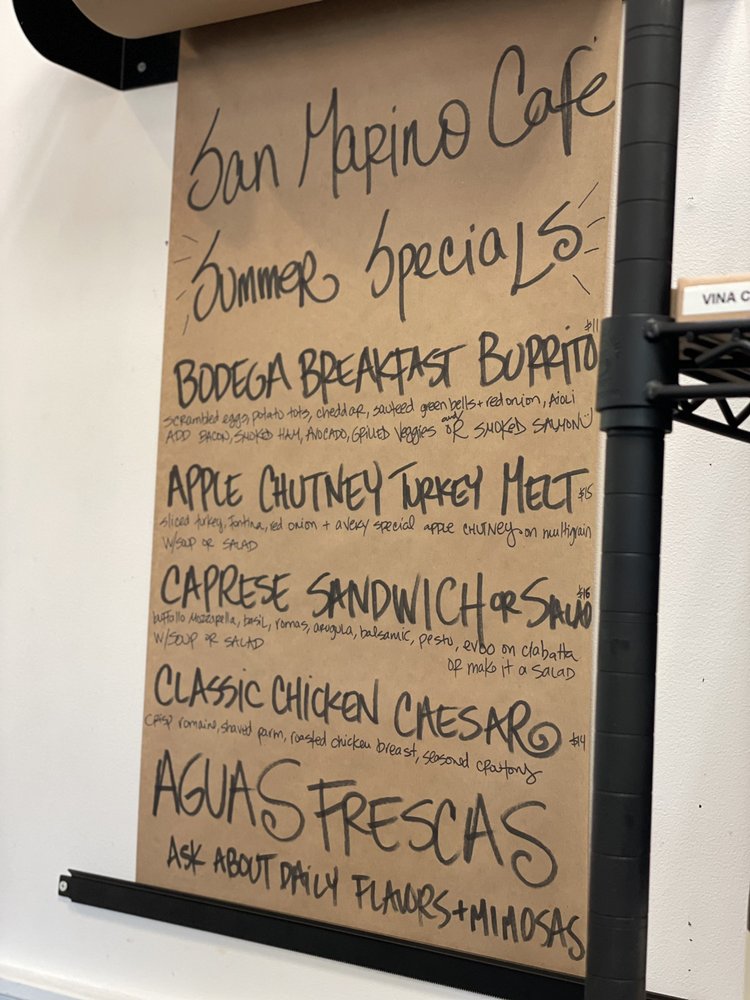 San Marino Café
Summer Specials
BODEGA BREAKFAST BURRITO $11
scrambled eggs, potato tots, cheddar, sauteed green bells + red onion, Aioli
ADD BACON, SMOKED HAM, AVOCADO, GRILLED Veggies and/OR SMOKED SALMON
APPLE CHUTNEY TURKEY MELT $15
sliced turkey, fontina, red onion + a very special apple CHUTNEY on multigrain
W/SOUP OR SALAD
CAPRESE SANDWICH OR SALAD $16
buffallo Mozzarella, basil, romas, arugula, balsamic, pesto, evoo on ciabatta
W/SOUP OR SALAD
OR make it a SALAD
CLASSIC CHICKEN CAESAR $14
crisp romaine, shaved parm, roasted chicken breast, seasoned croutons
AGUAS FRESCAS
ASK ABOUT DAILY FLAVORS + MIMOSAS
VINA C